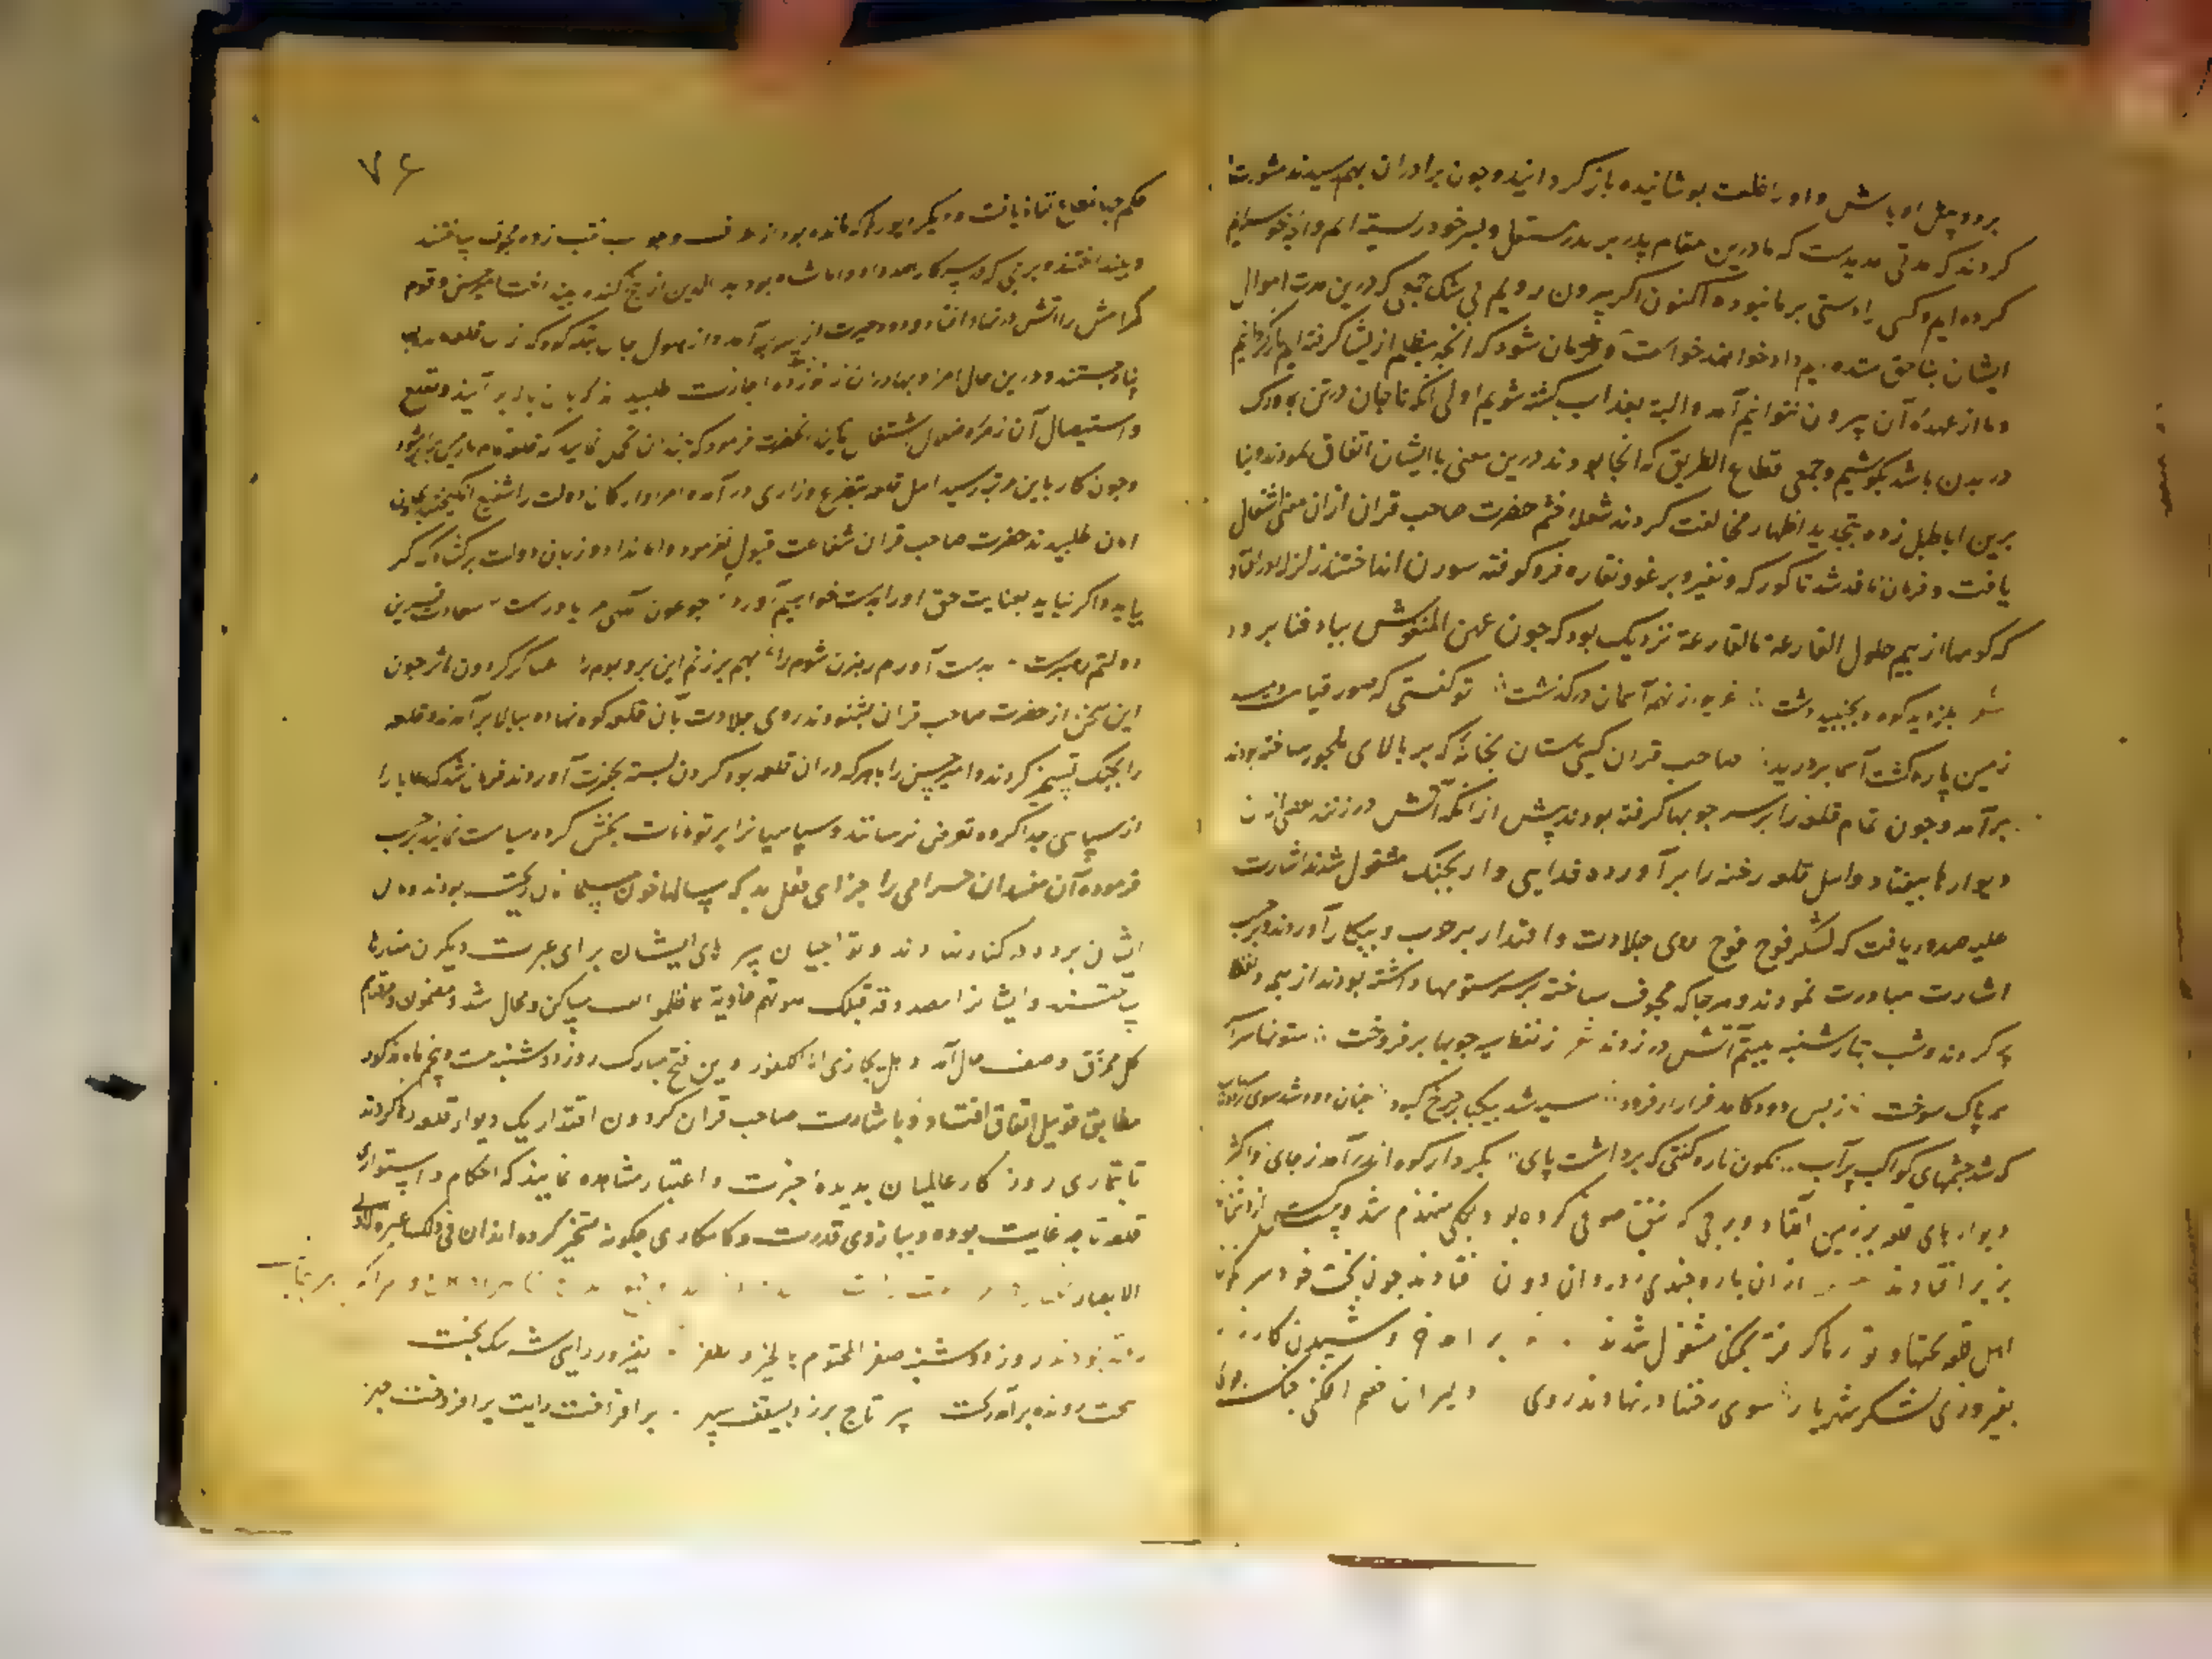 برد و چهل اوباش و او را خلعت پوشانیده باز گردانید و چون برادران بهم رسیدند مشورت
کردند که مدتی مدیدست که ما درین مقام پدر بر پدر مستقل و بسر خود زیسته ایم و آنچه خواسته
کرده ایم و کسی را دستی بر ما نبوده اکنون اگر بیرون رویم بی شک جمعی که درین مدت اموال
ایشان بناحق ستده ایم داد خواهند خواست و فرمان شود که آنچه بظلم از ایشان گرفته ایم باز گردانیم
و ما از عهده آن بیرون نتوانیم آمد و البته بعذاب کشته شویم اولی آنکه تا جان در تن و رگ
در بدن باشد بکوشیم و جمعی قطاع الطریق که آنجا بودند درین معنی با ایشان اتفاق نمودند و بنا
برین اباطیل زده بتجدید اظهار مخالفت کردند شعله خشم حضرت صاحب قران ازان معنی اشتعال
یافت و فرمان نافذ شد تا کورکه و نفیر و برغو و نقاره فرو کوفته سورن انداختند زلزله در افتاد
که کوهها از بیم حلول القارعة ما القارعة نزدیک بود که چون عهن المنفوش بباد فنا برود
شعر بلرزید کوه و بجنبید دشت غریو از نهم آسمان در گذشت تو گفتی که صور قیامت دمید
زمین پاره گشت آسمان بردرید صاحب قران گیتی ستان بخانه که بر بالای ملجور ساخته بودند
برآمد و چون تمام قلعه را بر سر چوبها گرفته بودند پیش از آنکه آتش در زنند بعضی ازان
دیوارها بیفتاد و اهل قلعه رخنه را برآورده فدایی وار بجنگ مشغول شدند اشارت
علیه صدور یافت که لشکر فوج فوج روی جلادت و اقتدار بحرب و پیکار آوردند و بر حسب
اشارت مبادرت نمودند و هر جا که مجوف ساخته بر سر ستونها داشته بودند از هیمه و نفط
پر کردند و شب چهارشنبه بیستم آتش در زدند شعر ز نفط سیه چوبها بر فروخت ستونها سراسر
همه پاک سوخت ز بس دود کامد فراز از فرود سیه شد بیکبار چرخ کبود چنان دود شد سوی
که شد چشمهای کواکب پر آب نگون باره گفتی که برداشت پای بکردار کوه اندر آمد ز جای و اکثر
دیوارهای قلعه بر زمین افتاد و برجی که نقب صوفی کرده بود بکلی منهدم شد و
بزیر افتادند از ان باره چندی دردان دون فتادند چون بخت خود سرنگون
اهل قلعه تختها و تورها گرفته بجنگ مشغول شدند
بفیروزی لشکر شهریار سوی رخنها در نهادند روی دلیران خصم افکن جنگ جوی
۷۶
حکم جهانمطاع نفاذ یافت و دیگر دیوارها که مانده بود از هر طرف و جوانب نقب زده مجوف ساختند
و بینداختند و برجی که در پیش کار محمد داد و اماشاه بود بدالدین از بیخ کنده بینداخت امیر حسن و قوم
گرامش را آتش در نهاد افتاد و دود حیرت از سر برآمد و از هول جان بتنگ کوه که نزد قلعه بود
پناه جستند و درین حال امرا و بهادران زانو زده اجازت طلبیدند که ببالا برآیند و بقلع
و استیصال آن زمره ضلال اشتغال نمایند آنحضرت فرمود که چندان تحمل نمایید که قلعه تمام با زمین برابر شود
و چون کار باین مرتبه رسید اهل قلعه بتضرع و زاری درآمده امرا و ارکان دولت را شفیع انگیختند و بجان
امان طلبیدند حضرت صاحب قران شفاعت قبول نفرمود و امان نداد و زبان دولت برگشاد که گر
بیاید و اگر نیاید بعنایت حق او را بدست خواهیم آورد چو عون الهی مرا یاورست سعادت قرین
دولتم رهبرست بدست آورم رهزن شوم را بهم برزنم این بر و بوم را عساکر گردون مآثر چون
این سخن از حضرت صاحب قران بشنودند روی جلادت بآن قلعه کوه نهاده ببالا برآمدند و قلعه
را بجنگ تسخیر کردند و امیر حسن را با هر که دران قلعه بود گردن بسته بحضرت آوردند فرمان شد که رعایا را
از سپاهی جدا کرده تعرض نرسانند و سپاهیان را بر تومانات بخش کرده سیاست نمایند بر حسب
فرموده آن مفسدان حرامی را جزای فعل بد که سالها خون مسلمانان ریخته بودند و مال
ایشان برده در کنار نهادند و تواجیان سرهای ایشان برای عبرت دیگران منارها
ساختند و ایشان را مصدوقه فتلک بیوتهم خاویة بما ظلموا وصف مساکن و محال شد و مضمون و مزقناهم
کل ممزق وصف حال آمد و هل نجازی الا الکفور و این فتح مبارک روز دوشنبه بیست و پنجم ماه مذکور
مطابق قوی ئیل اتفاق افتاد و باشارت صاحب قران گردون اقتدار یک دیوار قلعه رها کردند
تا بتماری روزگار عالمیان بدیده خبرت و اعتبار مشاهده نمایند که احکام و استواری
قلعه تا چه غایت بوده و ببازوی قدرت و کامکاری چگونه تسخیر کرده اند ان فی ذلک لعبرة لاولی
الابصار
روز دوشنبه صفر المختوم بالخیر و الظفر بفیروز رایی شه نیک بخت
بتخت رونده برآورد تخت سر تاج برزد بسقف سپهر برافراخت رایت برافروخت چهر